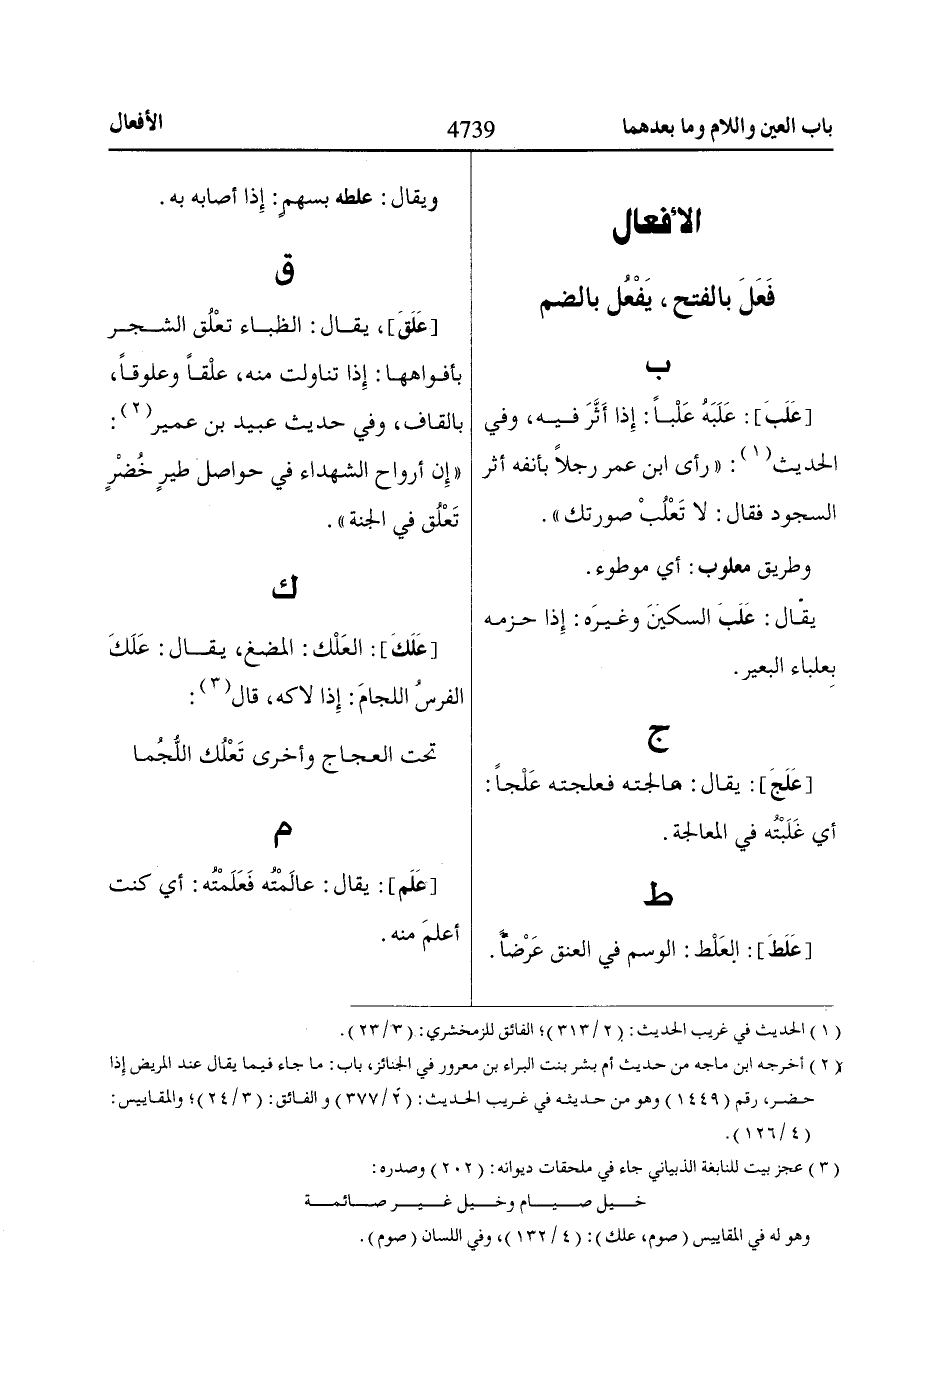 باب العين واللام وما بعدهما
4739
الأفعال
الأفعال
فَعَلَ بالفتح، يَفْعُل بالضم
ب
[عَلَبَ]: عَلَبَهُ عَلْباً: إذا أَثَّرَ فيه، وفي
الحديث(١): «رأى ابن عمر رجلاً بأنفه أثر
السجود فقال: لا تَعْلُبْ صورتك».
وطريق معلوب: أي موطوء.
يقال: عَلَبَ السكينَ وغيرَه: إذا حزمه
بعلباء البعير.
ج
[عَلَجَ]: يقال: هالجته فعلجته عَلْجاً:
أي غَلَبْتُه في المعالجة.
ط
[عَلَطَ]: العَلْط: الوسم في العنق عَرْضاً.
ويقال: علطه بسهمٍ: إذا أصابه به.
ق
[عَلَقَ]، يقال: الظباء تعْلُق الشجر
بأفواهها: إذا تناولت منه، علْقاً وعلوقاً،
بالقاف، وفي حديث عبيد بن عمير(٢):
«إن أرواح الشهداء في حواصل طيرٍ خُضْرٍ
تَعْلُق في الجنة».
ك
[عَلَكَ]: العَلْك: المضغ، يقال: عَلَكَ
الفرسُ اللجامَ: إذا لاكه، قال(٣):
تحت العجاج وأخرى تَعْلُك اللُّجُما
م
[عَلَم]: يقال: عالَمْتُه فَعَلَمْتُه: أي كنت
أعلمَ منه.
(١) الحديث في غريب الحديث: (٣١٣/٢)؛ الفائق للزمخشري: (٢٣/٣).
(٢) أخرجه ابن ماجه من حديث أم بشر بنت البراء بن معرور في الجنائز، باب: ما جاء فيما يقال عند المريض إذا
حضر، رقم (١٤٤٩) وهو من حديثه في غريب الحديث: (٣٧٧/٢) و الفائق: (٢٤/٣)؛ والمقاييس:
(١٢٦/٤).
(٣) عجز بيت للنابغة الذبياني جاء في ملحقات ديوانه: (٢٠٢) وصدره:
خيل صيام وخيل غير صائمة
وهو له في المقاييس (صوم، علك): (١٣٢/٤)، وفي اللسان (صوم).